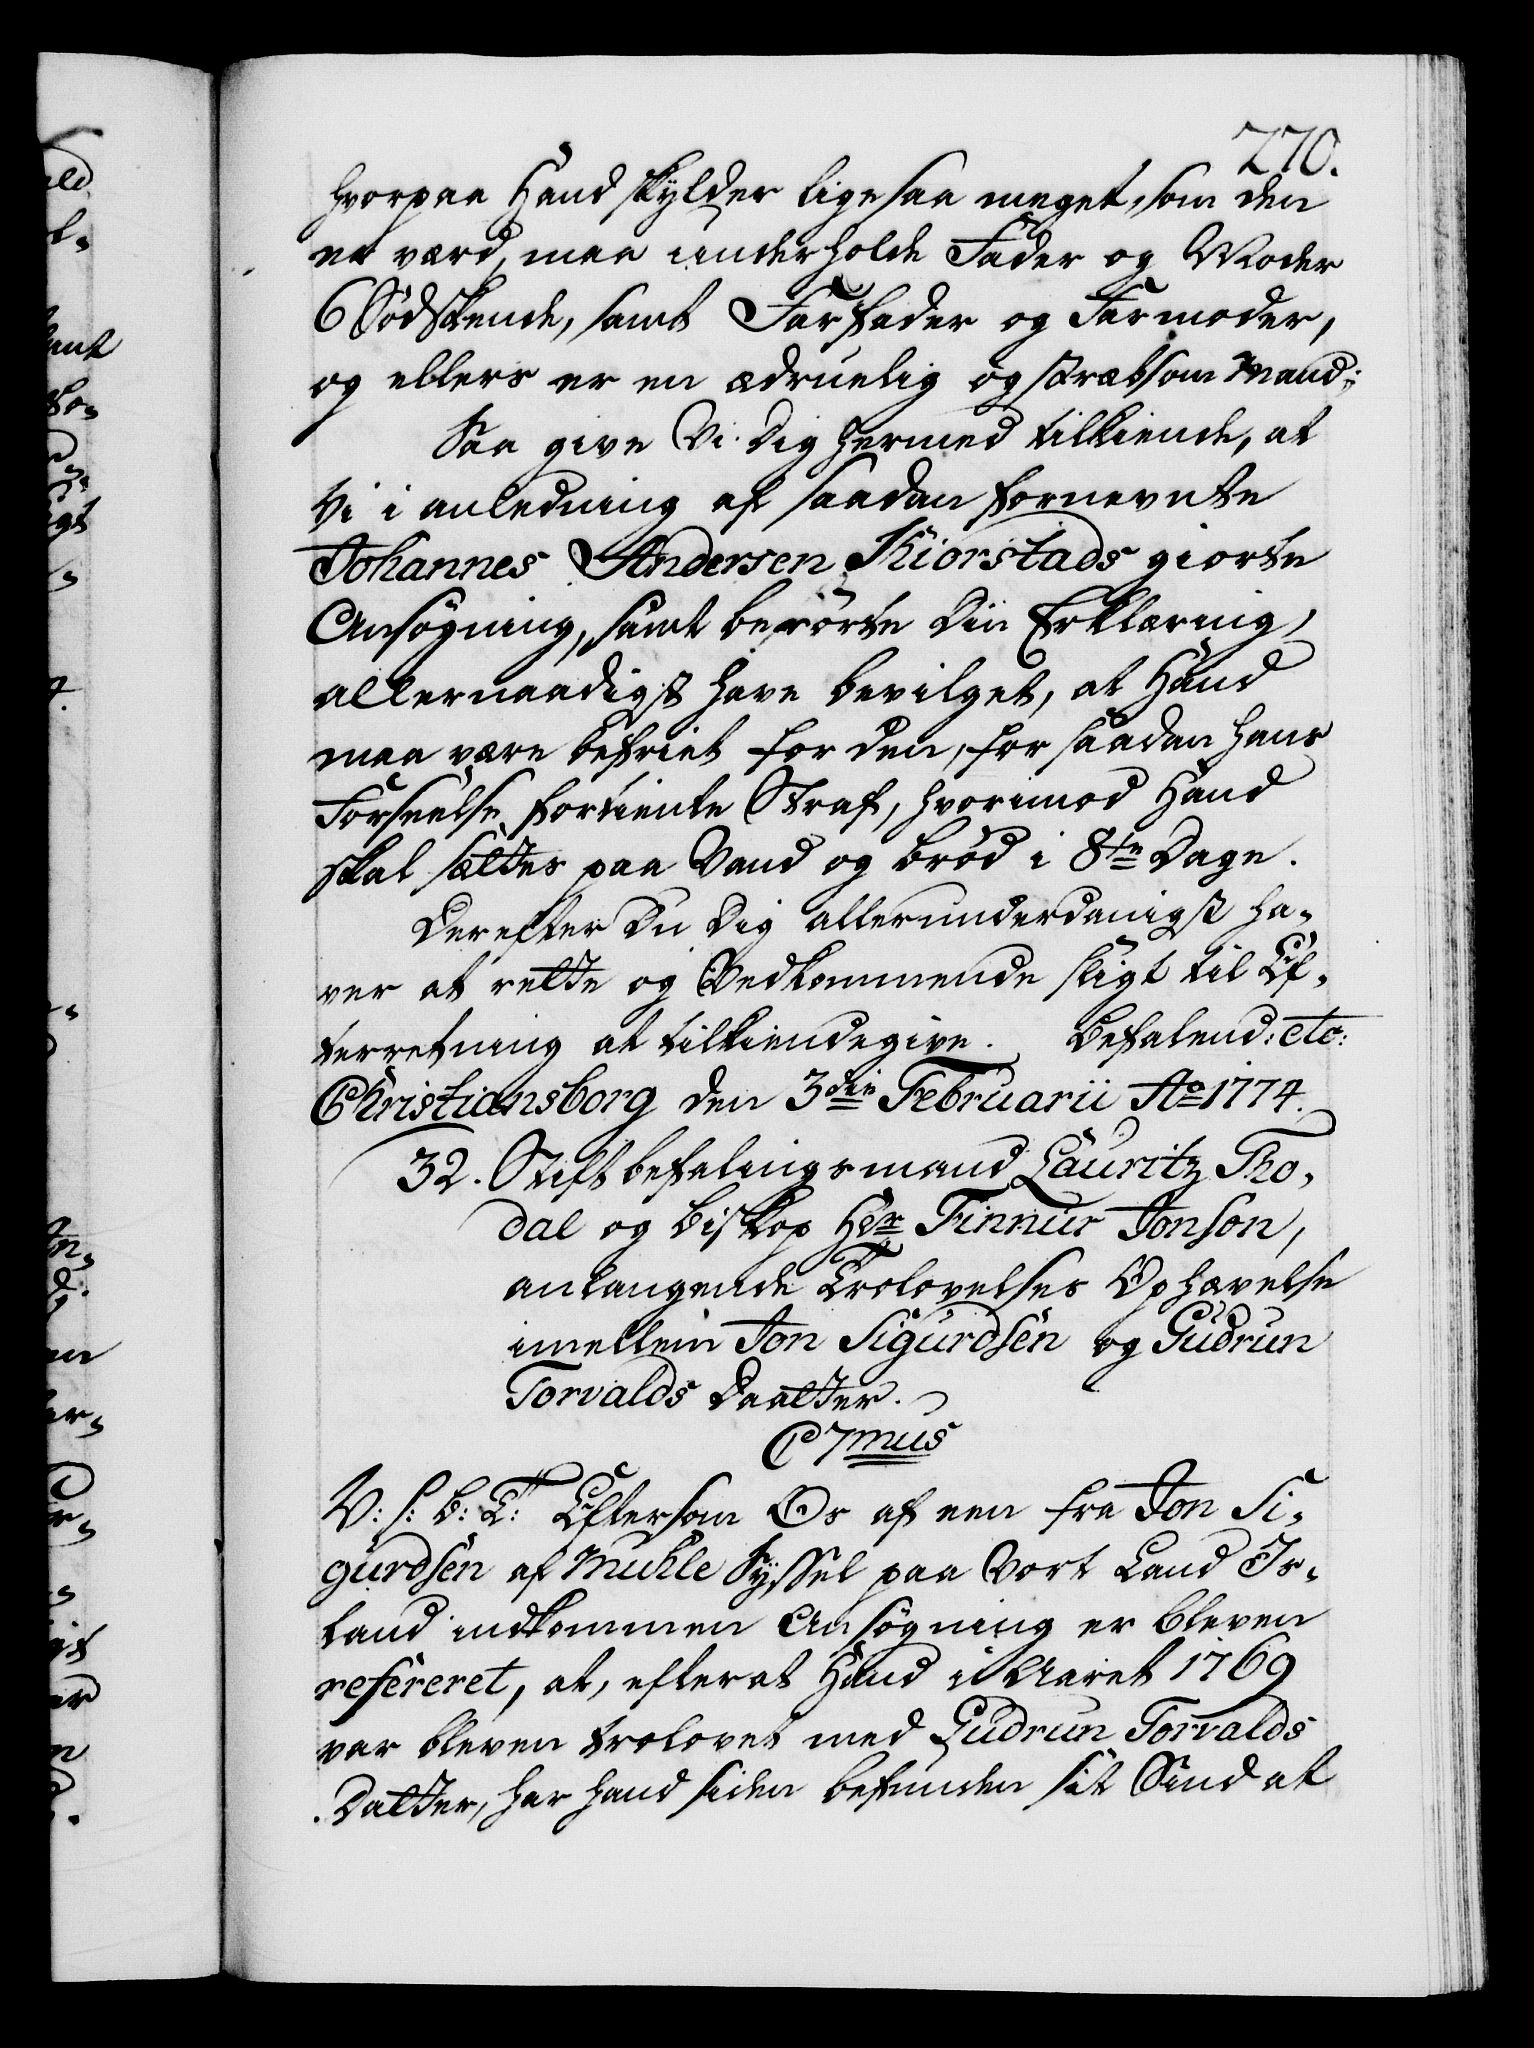 270.
hvorpaa Hand skylder ligesaa meget, som den
er værd, maa underholde Fader og Moder
6 Södskende, samt Farfader og Farmoder,
og ellers er en ædruelig og stræbsom Mand;
Saa give Vi Dig hermed tilkiende, at
Vi i anledning af saadan fornevnte
Johannes Andersen Kiorstads giorte
Ansögning, samt berörte Din Erklæring,
allernaadigst have bevilget, at Hand
maa være befriet for den, for saadan hans
Forseelse fortiente Straf, hvorimod Hand
skal sættes paa Vand og bröd i 8te Dage.
Derefter Du Dig allerunderdanigst ha-
ver at rette og Vedkommende sligt til Ef-
terretning at tilkiendegive. Befalend: etc:
Christiansborg den 3die Februarii Ao 1774.
32. Stiftbefalingsmand Lauritz Tho-
dal og biskop Hr Finnur Jonson,
anlangende Trolovelses Ophævelse
imellem Jon Sigurdsen og Gudrun
Torvalds Daatter.
C 7mus
V: S: b: T: Eftersom Os af een fra Jon Si-
gurdsen af Muhle Syssel paa Vort Land Is-
land indkommen Ansögning er bleven
refereret, at, efterat Hand i Aaret 1769
var bleven trolovet med Gudrun Torvalds
Datter, har hand siden befunden sit Sind at